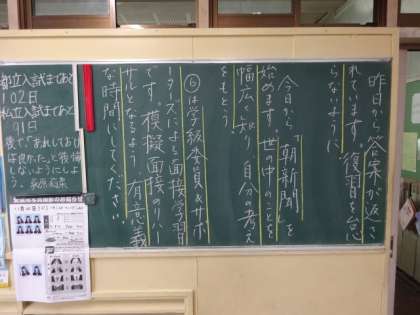 昨日から答案が返さ
れています。復習を怠
らないように
今日から「朝新聞」を
始めます。世の中のことを
幅広く知り、自分の考え
をもとう。
⑥は学級委員&サポ
ーターズによる面接学習
です。模擬面接のリハー
サルとなるよう、有意義
な時間にしてください。
都立入試まであと
102日
私立入試まであと
91日
後で、「あれしておけ
ば良かった。」と後悔
しないようにしよ
う。